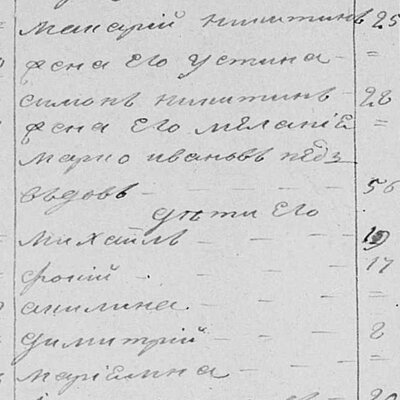 макарій никитинъ 25
жена Его устина - =
симонъ никитинъ - 28
жена Его мѣланіЕ =
марко ивановъ
вѣдовъ - 56
дѣти Его
михаилъ - 19
фокій - 17
акилина - =
димитрій - 8
маріЕмна - =